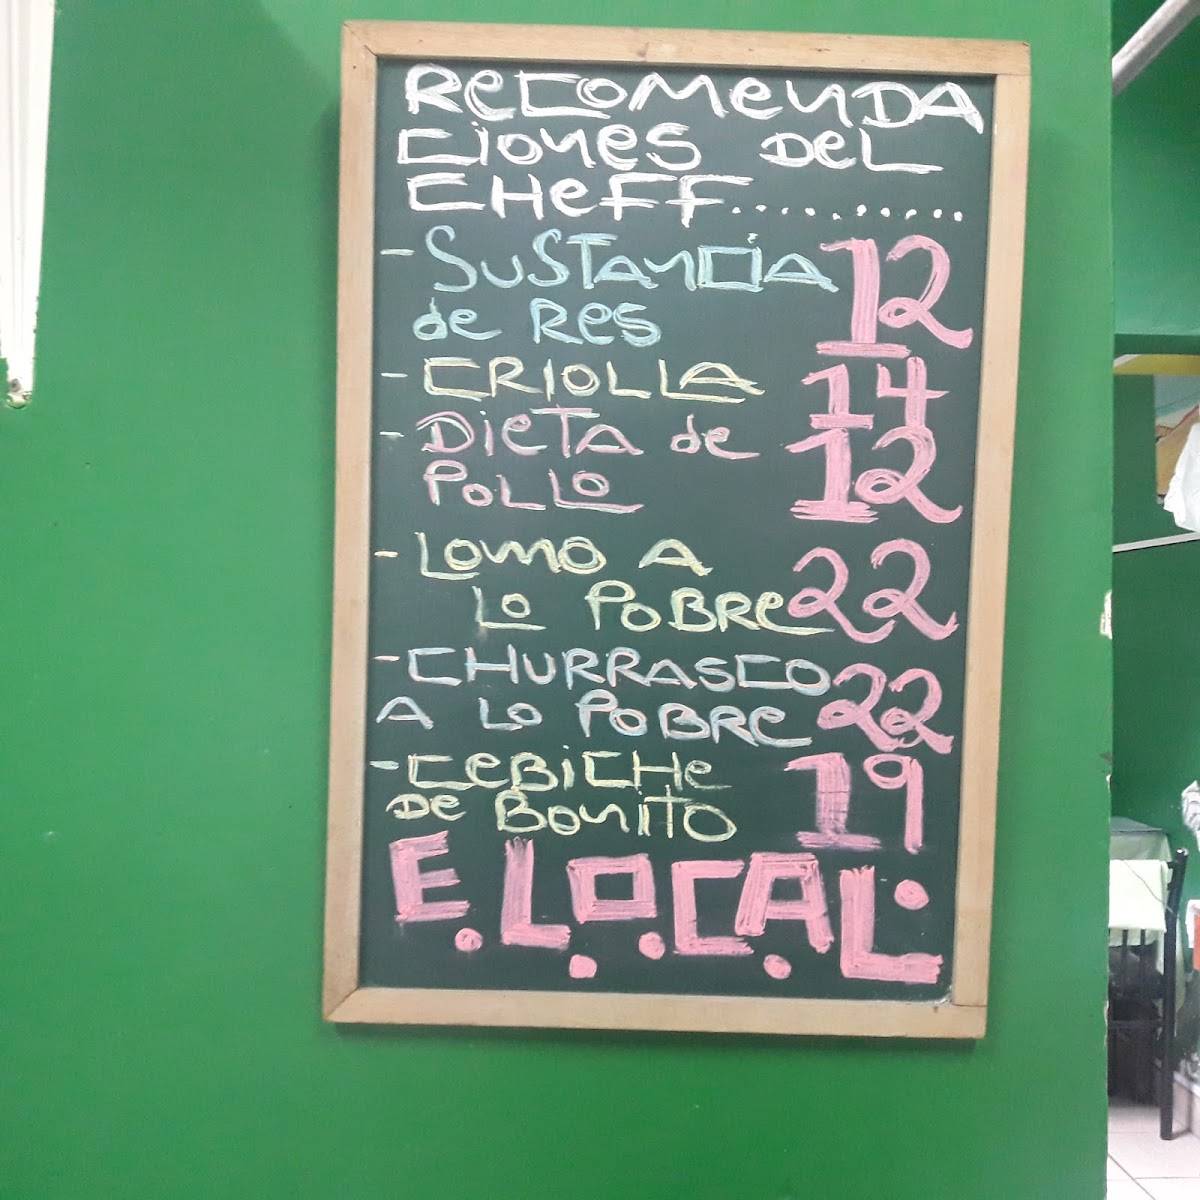 RecomenDA
ciones Del
CHeFF..........
- Sustancia 12
de Res
- CRIOLLA 14
- Dieta de 12
Pollo
- Lomo A
Lo PoBRe 22
- CHURRASCO
A Lo PoBRe 22
- CeBiCHe 19
De Bonito
E.LO.CAL.